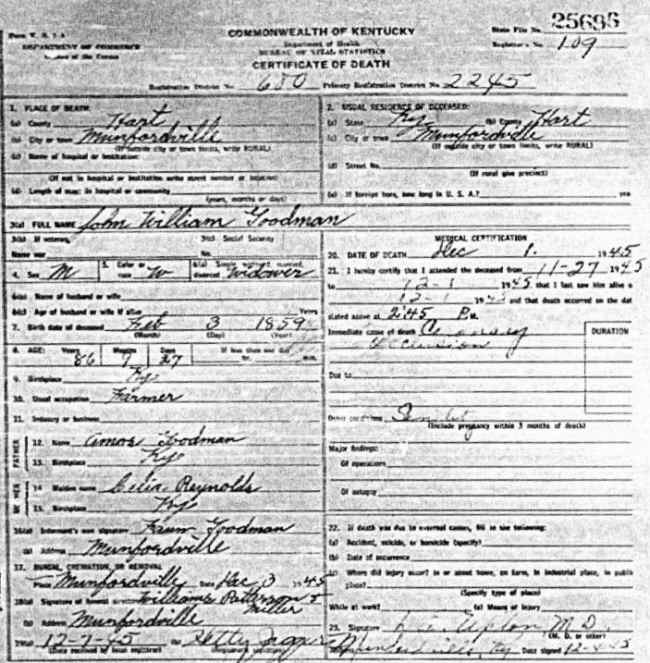 Form V. S. 1-A
DEPARTMENT OF COMMERCE
Bureau of the Census
COMMONWEALTH OF KENTUCKY
Department of Health
BUREAU OF VITAL STATISTICS
CERTIFICATE OF DEATH
State File No. 25696
Registrar's No. 109
Registration District No. 680 Primary Registration District No. 2245
1. PLACE OF DEATH:
(a) County Hart
(b) City or town Munfordville
(If outside city or town limits, write RURAL)
(c) Name of hospital or institution:
(If not in hospital or institution write street number or location)
(d) Length of stay: in hospital or community
(years, months or days)
2. USUAL RESIDENCE OF DECEASED:
(a) State Ky (b) County Hart
(c) City or town Munfordville
(If outside city or town limits, write RURAL)
(d) Street No.
(If rural give precinct)
(e) If foreign born, how long in U. S. A.? yrs
3(a) FULL NAME John William Goodman
3(b) If veteran, name war 3(c) Social Security No.
4. Sex M 5. Color or race W 6(a) Single, married, divorced Widower
6(b) Name of husband or wife
6(c) Age of husband or wife if alive Years
7. Birth date of deceased Feb 3 1859
(Month) (Day) (Year)
8. AGE: Years Months Days If less than one day
86 27
9. Birthplace Ky
10. Usual occupation Farmer
11. Industry or business
FATHER
12. Name Amos Goodman
13. Birthplace Ky
MOTHER
14. Maiden name Celia Reynolds
15. Birthplace Ky
16(a) Informant's own signature Goodman
(b) Address Munfordville
17. BURIAL, CREMATION, OR REMOVAL
Place Munfordville Date Dec 3 1945
18(a) Signature of funeral Williams Patterson & Miller
(b) Address Munfordville
19(a) 12-7-45 (b)
(Date received by local registrar) (Registrar's signature)
MEDICAL CERTIFICATION
20. DATE OF DEATH Dec 1. 1945
21. I hereby certify that I attended the deceased from 11-27 1945
to 12-1 1945, that I last saw him alive
12-1 1945 and that death occurred on the date
stated above at 2:45 P. M.
Immediate cause of death Coronary
occlusion
DURATION
Due to
Other conditions
(Include pregnancy within 3 months of death)
Major findings:
Of operations
Of autopsy
22. If death was due to external causes, fill in the following:
(a) Accident, suicide, or homicide (specify)
(b) Date of occurrence
(c) Where did injury occur? In or about home, on farm, in industrial place, in public place?
(Specify type of place)
While at work? (e) Means of injury
23. Signature Upton M. D.
(M. D. or other)
Date signed 12-4-45